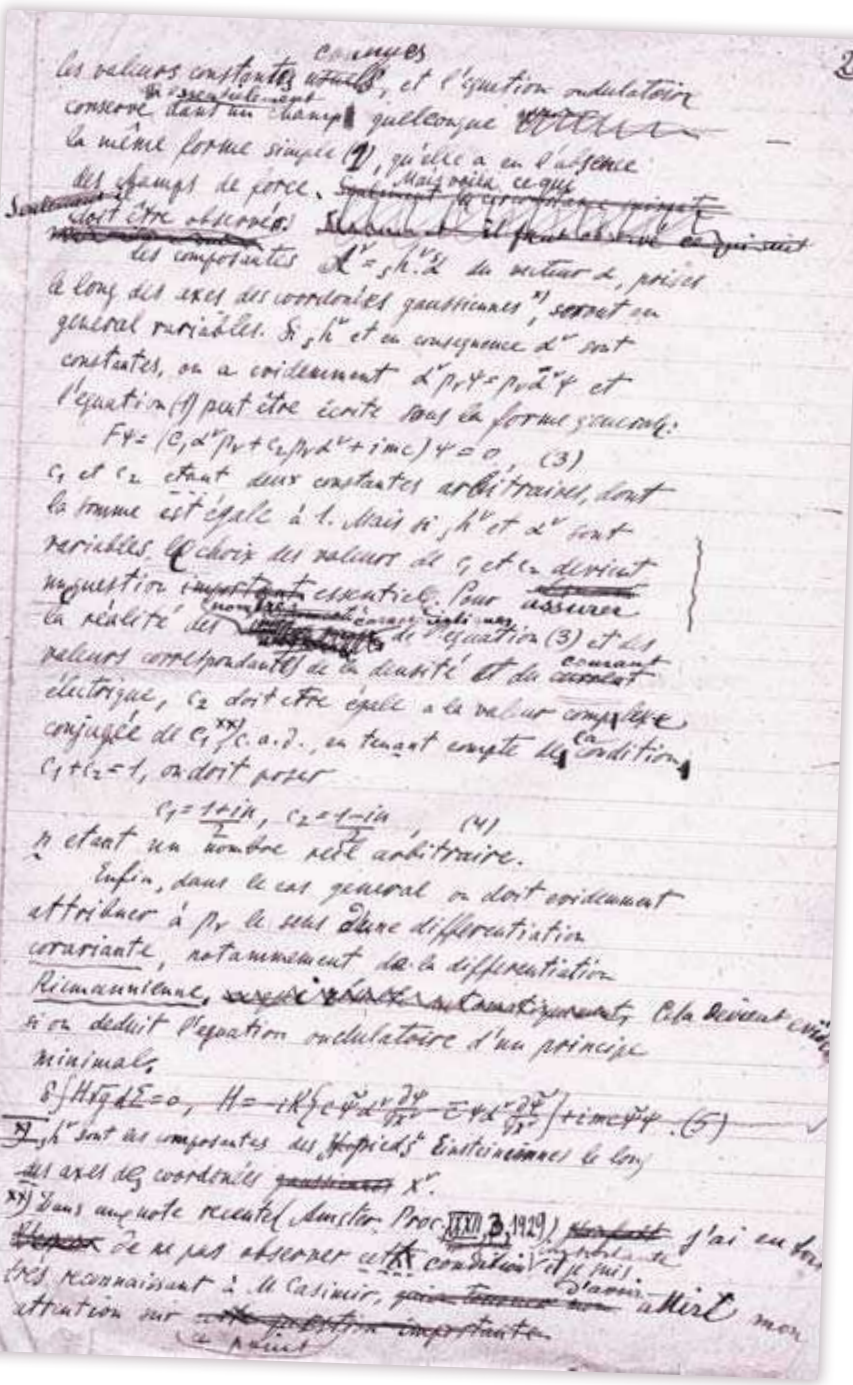 2
connues
les valeurs constantes usuels, et l'equation ondulatoire
essentielement
conserve dans un champ quelconque
la même forme simple (1), qu'elle a en l'absence
Mais voici ce qui
des champs de force.
Seulement
doit être observé.
les composantes
du vecteur α, prises
le long des axes des coordonées gaussiennes x), seront en
general variables. Si ₛhᵛ et en consequence αᵛ sont
constantes, on a evidemment αᵛpᵥψ = pᵥαᵛψ et
l'equation (1) peut être écrite sous la forme generale:
Fψ = (c₁αᵛpᵥ + c₂pᵥαᵛ + imc) ψ = 0 (3)
c₁ et c₂ etant deux constantes arbitraires, dont
la somme est égale à 1. Mais si ₛhᵛ et αᵛ sont
variables, le choix des valeurs de c₁ et c₂ devient
question important essentiel. Pour assurer
nombres caracteristiques
la réalité des de l'equation (3) et des
courant
valeurs correspondantes de la densité et du current
électrique, c₂ doit etre égale a la valeur complexe
conjugée de c₁ xx) c.a.d., en tenant compte de la condition
c₁+c₂=1, on doit poser
c₁ = 1+in/2, c₂ = 1-in/2, (4)
n etant un nombre reél arbitraire.
Enfin, dans le cas general on doit evidemment
attribuer à pᵥ le sens d'une differentiation
covariante, notammement de la differentiation
Riemannienne, Cela devient
si on deduit l'equation ondulatoire d'un principe
minimal,
(5)
x) ₛhᵛ sont les composantes des Einsteiniennes le long
des axes des coordonées gaussiennes xᵛ.
xx) Dans une note recente (Amster. Proc. XXXII, 3, 1929) j'ai eu
de ne pas observer cette condition et je suis
importante
d'avoir
très reconnaissant à M Casimir, attiré mon
attention sur cette question importante
ce point